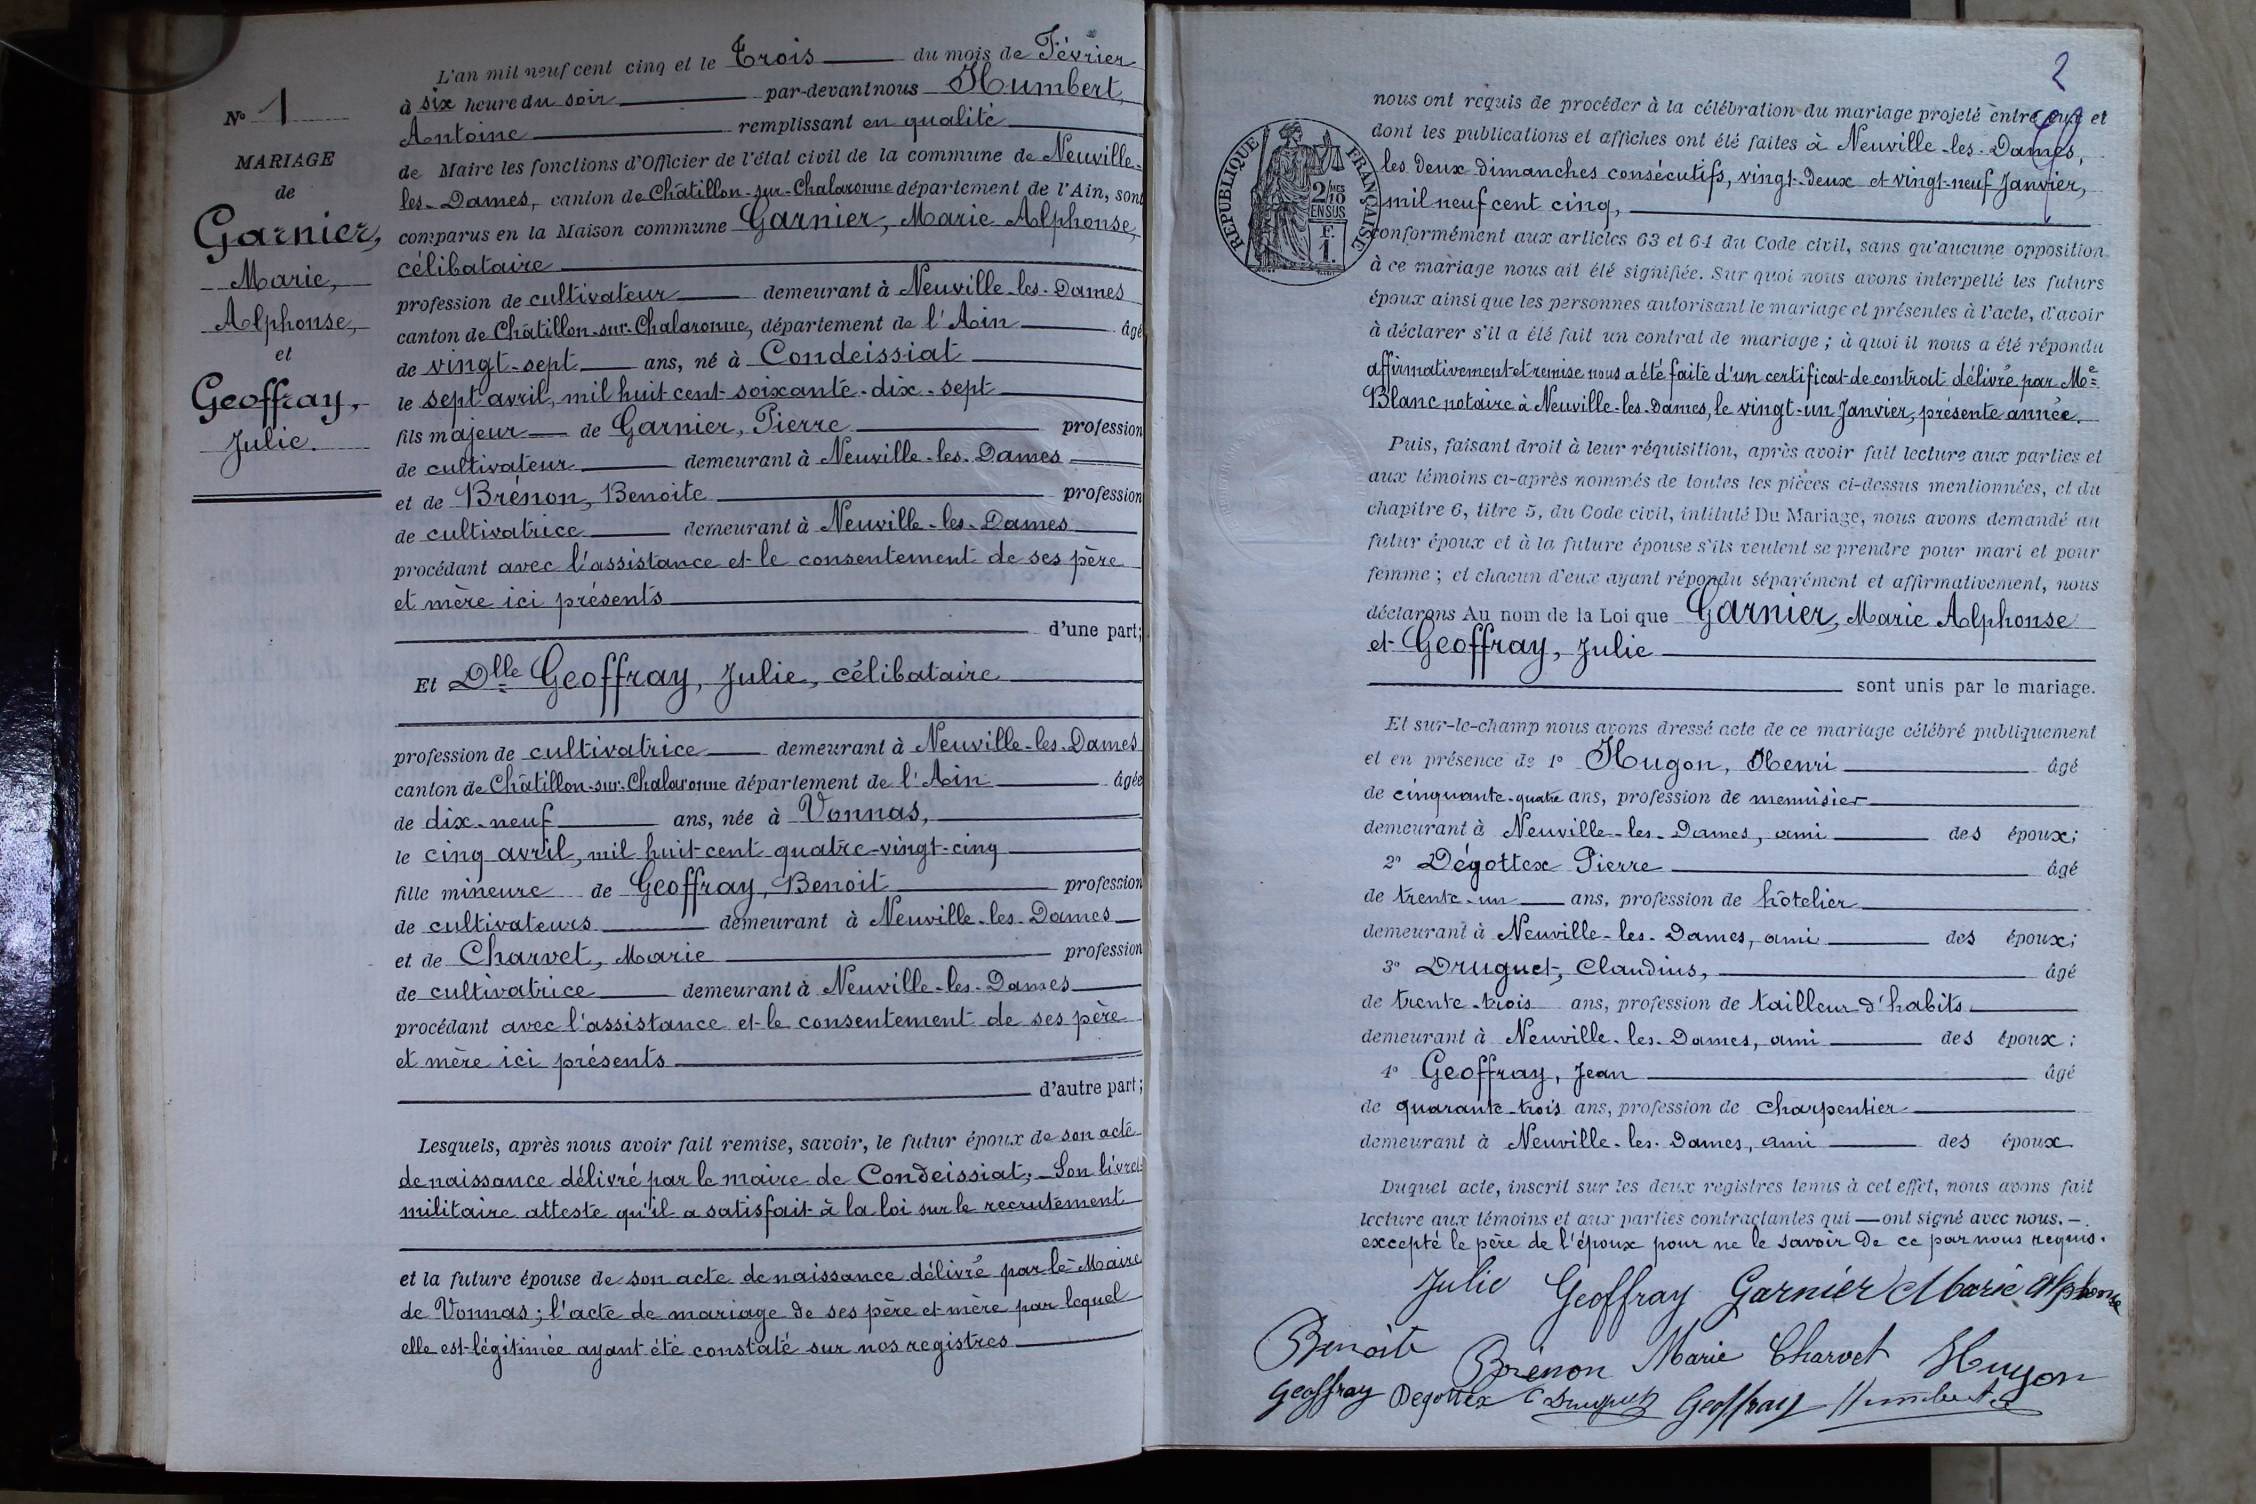 N° 1
MARIAGE
de
Garnier,
Marie,
Alphonse,
et
Geoffray,
Julie.
L'an mil neuf cent cinq et le Trois du mois de Février
à six heure du soir par-devant nous Humbert,
Antoine remplissant en qualité
de Maire les fonctions d'Officier de l'état civil de la commune de Neuville-
les-Dames, canton de Châtillon-sur-Chalaronne département de l'Ain, sont
comparus en la Maison commune Garnier, Marie Alphonse,
célibataire
profession de cultivateur demeurant à Neuville-les-Dames
canton de Châtillon-sur-Chalaronne, département de l'Ain âgé
de vingt-sept ans, né à Condeissiat
le sept avril, mil huit cent soixante-dix-sept
fils majeur de Garnier, Pierre profession
de cultivateur demeurant à Neuville-les-Dames
et de Brénon, Benoite profession
de cultivatrice demeurant à Neuville-les-Dames
procédant avec l'assistance et le consentement de ses père
et mère ici présents
d'une part;
Et Dlle Geoffray, Julie, célibataire
profession de cultivatrice demeurant à Neuville-les-Dames
canton de Châtillon-sur-Chalaronne département de l'Ain âgée
de dix-neuf ans, née à Vonnas,
le cinq avril, mil huit cent quatre-vingt-cinq
fille mineure de Geoffray, Benoit profession
de cultivateurs demeurant à Neuville-les-Dames
et de Charvet, Marie profession
de cultivatrice demeurant à Neuville-les-Dames
procédant avec l'assistance et le consentement de ses père
et mère ici présents
d'autre part;
Lesquels, après nous avoir fait remise, savoir, le futur époux de son acte
de naissance délivré par le maire de Condeissiat; Son livret
militaire atteste qu'il a satisfait à la loi sur le recrutement
et la future épouse de son acte de naissance délivré par le Maire
de Vonnas; l'acte de mariage de ses père et mère par lequel
elle est légitimée ayant été constaté sur nos registres
2
RÉPUBLIQUE FRANÇAISE
2/10MES
EN SUS
F.
1.
nous ont requis de procéder à la célébration du mariage projeté entre eux et
dont les publications et affiches ont été faites à Neuville-les-Dames,
les deux dimanches consécutifs, vingt-deux et vingt-neuf Janvier,
mil neuf cent cinq,
conformément aux articles 63 et 64 du Code civil, sans qu'aucune opposition
à ce mariage nous ait été signifiée. Sur quoi nous avons interpellé les futurs
époux ainsi que les personnes autorisant le mariage et présentes à l'acte, d'avoir
à déclarer s'il a été fait un contrat de mariage; à quoi il nous a été répondu
affirmativement et remise nous a été faite d'un certificat de contrat délivré par Me
Blanc notaire à Neuville-les-Dames, le vingt-un Janvier, présente année.
Puis, faisant droit à leur réquisition, après avoir fait lecture aux parties et
aux témoins ci-après nommés de toutes les pièces ci-dessus mentionnées, et du
chapitre 6, titre 5, du Code civil, intitulé Du Mariage, nous avons demandé au
futur époux et à la future épouse s'ils veulent se prendre pour mari et pour
femme; et chacun d'eux ayant répondu séparément et affirmativement, nous
déclarons Au nom de la Loi que Garnier, Marie Alphonse
et Geoffray, Julie
sont unis par le mariage.
Et sur-le-champ nous avons dressé acte de ce mariage célébré publiquement
et en présence de 1° Hugon, Henri âgé
de cinquante-quatre ans, profession de menuisier
demeurant à Neuville-les-Dames, ami des époux;
2° Dégottex Pierre âgé
de trente-un ans, profession de hôtelier
demeurant à Neuville-les-Dames, ami des époux;
3° Druguet, Claudius, âgé
de trente-trois ans, profession de tailleur d'habits
demeurant à Neuville-les-Dames, ami des époux;
4° Geoffray, Jean âgé
de quarante-trois ans, profession de charpentier
demeurant à Neuville-les-Dames, ami des époux.
Duquel acte, inscrit sur les deux registres tenus à cet effet, nous avons fait
lecture aux témoins et aux parties contractantes qui — ont signé avec nous. —
excepté le père de l'époux pour ne le savoir de ce par nous requis.
Julie Geoffray Garnier Marie Alphonse
Benoite Brénon Marie Charvet Hugon
Geoffray Degottex C Druguet Geoffray Humbert A.